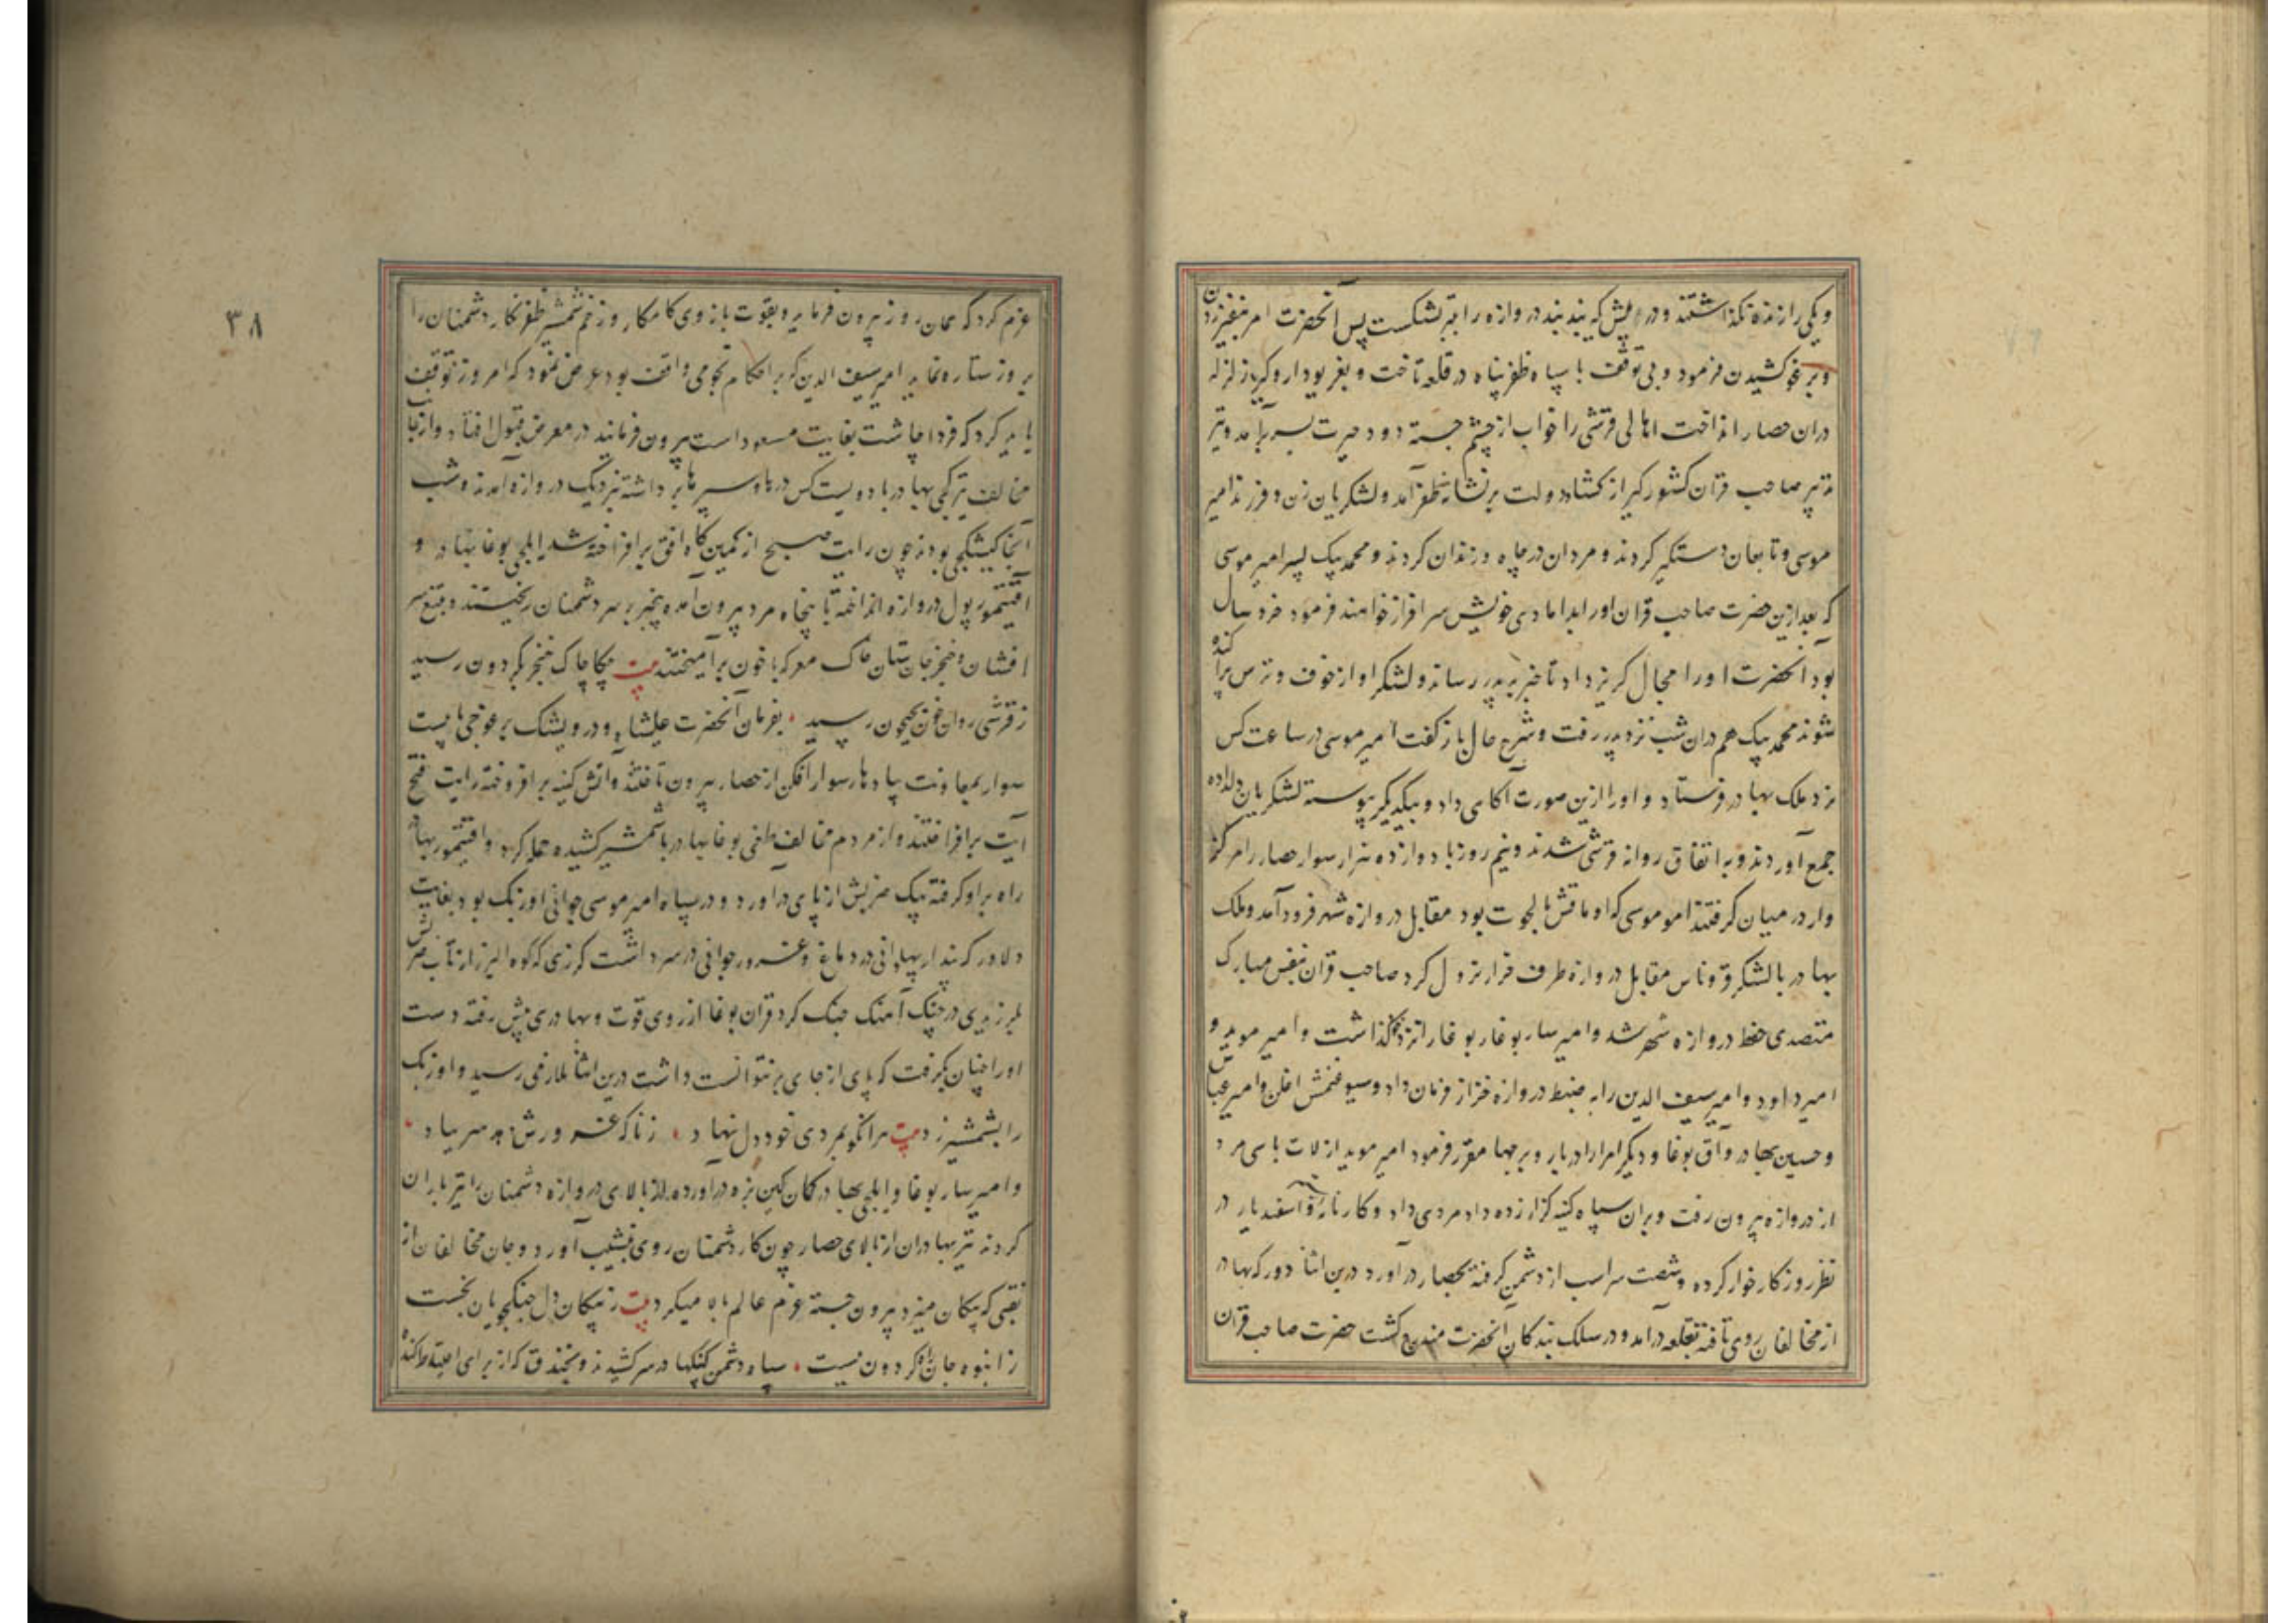 ویکی را زنده نگذاشتند و در پیش که بند بند دروازه را بتبر بشکست پس آنحضرت امر بنفیر زدن
و برغو کشیدن فرمود و بی توقف با سپاه ظفر پناه در قلعه تاخت و بغریو دار و گیر زلزله
دران حصار انداخت اهالی قرشی را خواب از چشم جسته دود حیرت بسر برآمد و تیر
تدبیر صاحب قران کشورگیر از گشاد دولت بر نشانه ظفر آمد و لشکریان زن و فرزند امیر
موسی و تابعان دستگیر کردند و مردان در چاه و زندان کردند و محمد بیک پسر امیر موسی
که بعد ازین حضرت صاحب قران او را بدامادی خویش سرافراز خواهند فرمود خرد سال
بود آنحضرت او را مجال گریز داد تا خبر بپدر رساند و لشکر او از خوف و ترس پراکنده
شوند محمد بیک هم دران شب نزد پدر رفت و شرح حال باز گفت امیر موسی در ساعت کس
نزد ملک بهادر فرستاد و او را ازین صورت آگاهی داد و بیکدیگر پیوسته لشکریان دلداده
جمع آوردند و به اتفاق روانه قرشی شدند و نیم روز با دوازده هزار سوار حصار را مرکز
وار در میان گرفتند امو موسی که اوماقش بالجوت بود مقابل دروازه شهر فرود آمد و ملک
بهادر با لشکر قوناس مقابل دروازه طرف فرار نزول کرد صاحب قران بنفس مبارک
متصدی حفظ دروازه شهر شد و امیر سار بوغا را نزد خود گذاشت و امیر موید و
امیر داود و امیر سیف الدین را به ضبط دروازه فرمان داد و سیورغتمش اغلن و امیر عباس
و حسین بهادر و آق بوغا و دیگر امرا را در باره و برجها مقرر فرمود امیر موید ارلات با سی مرد
از دروازه بیرون رفت و بران سپاه کینه گزار زده داد مردی داد و کارنامه اسفندیار در
نظر روزگار خوار کرده و شصت سر اسب از دشمن گرفته بحصار در آورد درین اثنا دورکه بهادر
از مخالفان روی تافته بقلعه درآمد و در سلک بندگان آنحضرت مندرج گشت حضرت صاحب قران
۳۸
عزم کرد که همان روز بیرون فرماید و بقوت بازوی کامکار و زخم شمشیر ظفر نگار دشمنان را
بروز ستاره نماید امیر سیف الدین که بر احکام نجومی واقف بود عرض نمود که امروز توقف
باید کرد که فردا چاشت بغایت مسعود است بیرون فرمایند در معرض قبول افتاد و از جانب
مخالف ترکی بهادر با دویست کس درها و سپرها برداشته نزدیک دروازه آمدند و شب
آنجا کیشکچی بودند چون رایت صبح از کمین گاه افق برافراخته شد ایلچی بوغا بهادر و
آقتیمور پول دروازه انداخته با پنجاه مرد بیرون آمده بیخبر بر سر دشمنان ریختند و بتیغ سر
افشان و خنجر جان ستان خاک معرکه با خون برآمیختند بیت چکاچاک خنجر بگردون رسید
ز قرشی روان خون بجیحون رسید بفرمان آنحضرت علیشاه و درویشک برغوجی با بیست
سوار بمعاونت پیادها سوار افکن از حصار بیرون تاختند و آتش کینه برافروخته رایت فتح
آیت برافراختند و از مردم مخالف طغی بوغا بهادر با شمشیر کشیده حمله کرد و اقتیمور بهادر
راه برو گرفته بیک ضربش از پای درآورد و در سپاه امیر موسی جوانی اوزبک بود بغایت
دلاور که پندار پهلوانی در دماغ و غرور جوانی در سر داشت گرزی که کوه البرز از تاب ضربش
بلرزیدی در چنک آهنک جنک کرد قزان بوغا از روی قوت و بهادری پیش رفته دست
او را چنان بگرفت که پای از جای بر نتوانست داشت درین اثنا رسید و اوزبک
را بشمشیر زد بیت هرانکو بمردی خود دل نهاد زناگه غرورش دهد سر بباد
و امیر سار بوغا و ایلچی بهادر کمان کین بزه درآورده از بالای دروازه دشمنان را تیرباران
کردند تیر بهادران از بالای حصار چون کار دشمنان روی بنشیب آورد و جان مخالفان از
نقبی که پیکان میزد بیرون جسته عزم عالم بالا میکرد بیت ز پیکان دل جنگجویان بخست
ز انبوه جان راه گردون ببست سپاه دشمن کپنکها در سر کشیدند و بخندقی که از برای احتیاط کنده